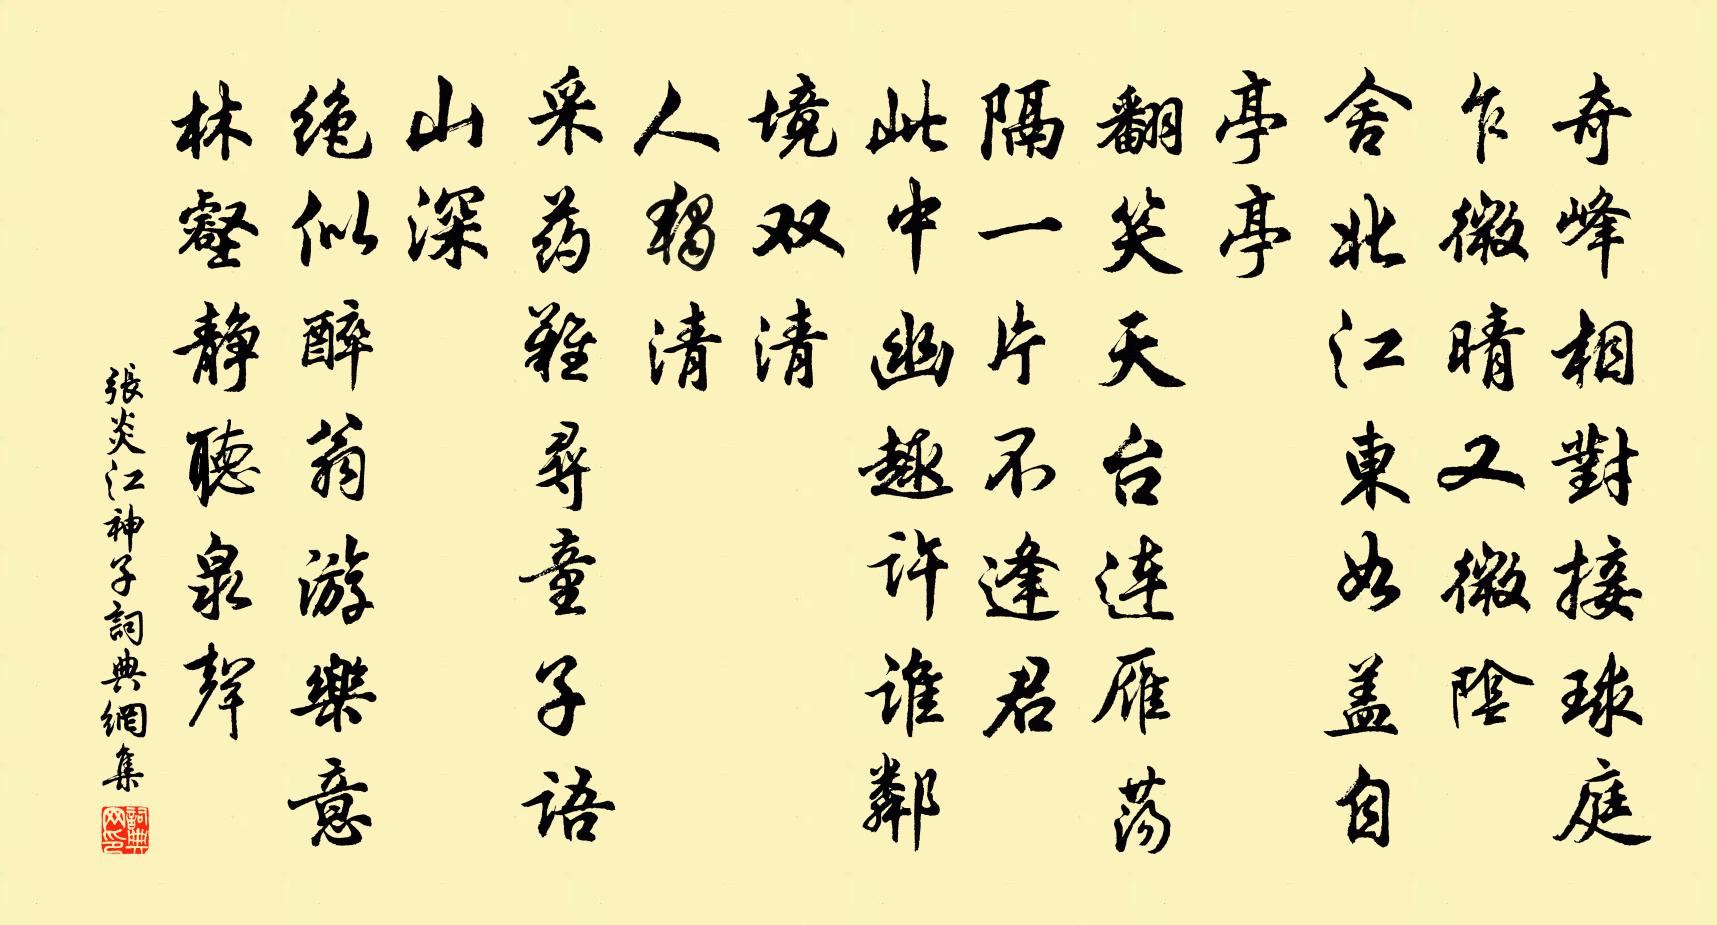 奇峰相對接球庭
乍微晴又微陰
舍北江東如蓋自
亭亭
翻笑天台連雁荡
隔一片不逢君
此中幽趣许谁鄰
境双清
人獨清
采药難尋童子語
山深
绝似醉翁游樂意
林壑靜聽泉聲
張炎江神子詞典網集
詞典网印